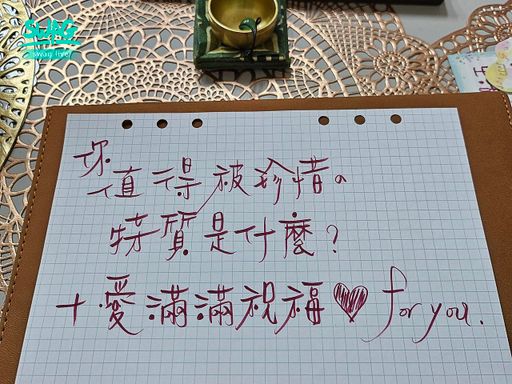 SWAG
你
值得被珍惜の
特質是什麼？
十愛滿滿祝福♥ for you.